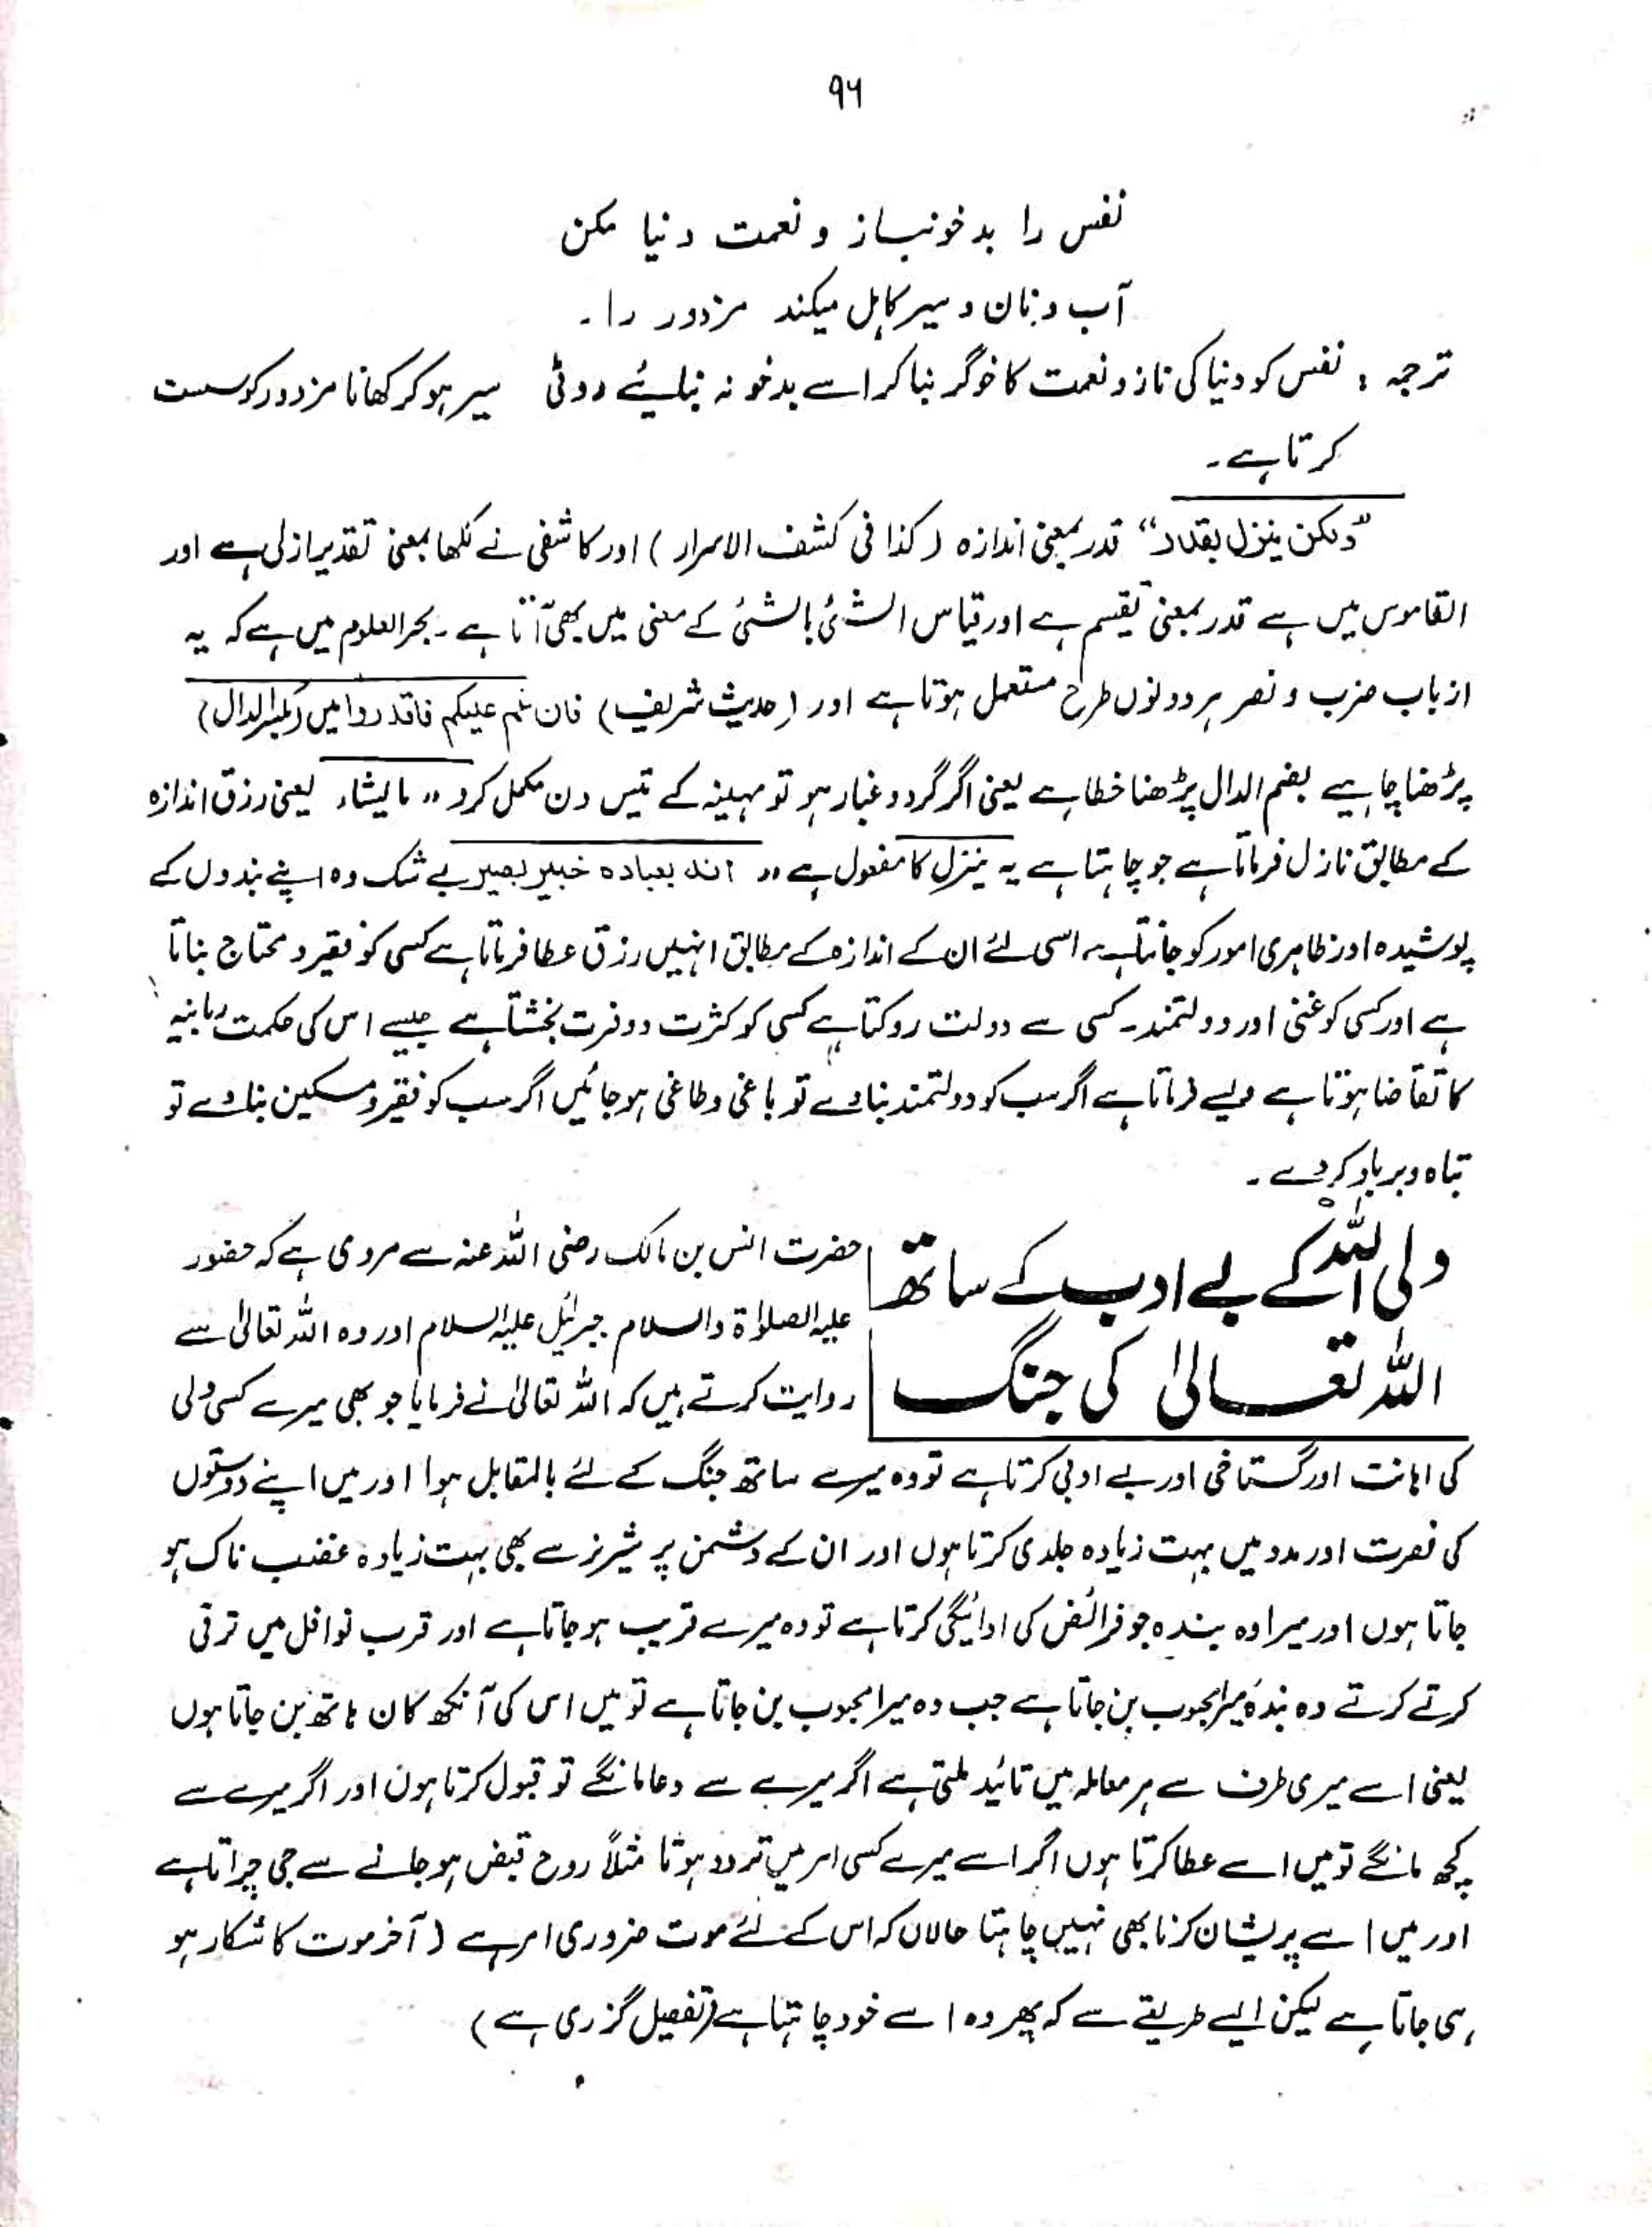 ۹۶
نفس را بدخو نساز و نعمت دنیا مکن
آب و نان و سیر کاہل میکند مزدور را۔
ترجمہ : نفس کو دنیا کی ناز و نعمت کا خوگر بنا کر اسے بدخو نہ بنایئے روٹی سیر ہو کر کھانا مزدور کو سست
کرتا ہے۔
”ولکن ینزل بقدر“ قدر بمعنی اندازہ (کذا فی کشف الاسرار) اور کاشفی نے لکھا بمعنی تقدیر ازلی ہے اور
القاموس میں ہے قدر بمعنی تقسیم ہے اور قیاس الشئ بالشئ کے معنی میں بھی آتا ہے۔ بحر العلوم میں ہے کہ یہ
از باب ضرب و نصر ہر دونوں طرح مستعمل ہوتا ہے اور (حدیث شریف) فان غم علیکم فاقدروا میں (بکسر الدال)
پڑھنا چاہیے بضم الدال پڑھنا خطا ہے یعنی اگر گرد و غبار ہو تو مہینہ کے تیس دن مکمل کرو ״ ما یشاء یعنی رزق اندازہ
کے مطابق نازل فرماتا ہے جو چاہتا ہے یہ ینزل کا مفعول ہے ״ انہ بعبادہ خبیر بصیر بے شک وہ اپنے بندوں کے
پوشیدہ اور ظاہری امور کو جانتا ہے اسی لئے ان کے اندازہ کے مطابق انہیں رزق عطا فرماتا ہے کسی کو فقیر و محتاج بناتا
ہے اور کسی کو غنی اور دولتمند۔ کسی سے دولت روکتا ہے کسی کو کثرت و وفرت بخشتا ہے جیسے اس کی حکمت ربانیہ
کا تقاضا ہوتا ہے ویسے فرماتا ہے اگر سب کو دولتمند بنا دے تو باغی و طاغی ہو جائیں اگر سب کو فقیر و مسکین بنا دے تو
تباہ و برباد کر دے۔
ولی اللہ کے بے ادب کے ساتھ
اللہ تعالیٰ کی جنگ
حضرت انس بن مالک رضی اللہ عنہ سے مروی ہے کہ حضور
علیہ الصلوٰۃ والسلام جبرائیل علیہ السلام اور وہ اللہ تعالیٰ سے
روایت کرتے ہیں کہ اللہ تعالیٰ نے فرمایا جو بھی میرے کسی ولی
کی اہانت اور گستاخی اور بے ادبی کرتا ہے تو وہ میرے ساتھ جنگ کے لئے بالمقابل ہوا اور میں اپنے دوستوں
کی نصرت اور مدد میں بہت زیادہ جلدی کرتا ہوں اور ان کے دشمن پر شیر نر سے بھی بہت زیادہ غضب ناک ہو
جاتا ہوں اور میرا وہ بندہ جو فرائض کی ادائیگی کرتا ہے تو وہ میرے قریب ہو جاتا ہے اور قرب نوافل میں ترقی
کرتے کرتے وہ بندہ میرا محبوب بن جاتا ہے جب وہ میرا محبوب بن جاتا ہے تو میں اس کی آنکھ کان ہاتھ بن جاتا ہوں
یعنی اسے میری طرف سے ہر معاملہ میں تائید ملتی ہے اگر میرے سے دعا مانگے تو قبول کرتا ہوں اور اگر میرے سے
کچھ مانگے تو میں اسے عطا کرتا ہوں اگر اسے میرے کسی امر میں تردد ہوتا مثلاً روح قبض ہو جانے سے جی چراتا ہے
اور میں اسے پریشان کرنا بھی نہیں چاہتا حالاں کہ اس کے لئے موت ضروری امر ہے (آخر موت کا شکار ہو
ہی جاتا ہے لیکن ایسے طریقے سے کہ پھر وہ اسے خود چاہتا ہے (تفصیل گزری ہے)